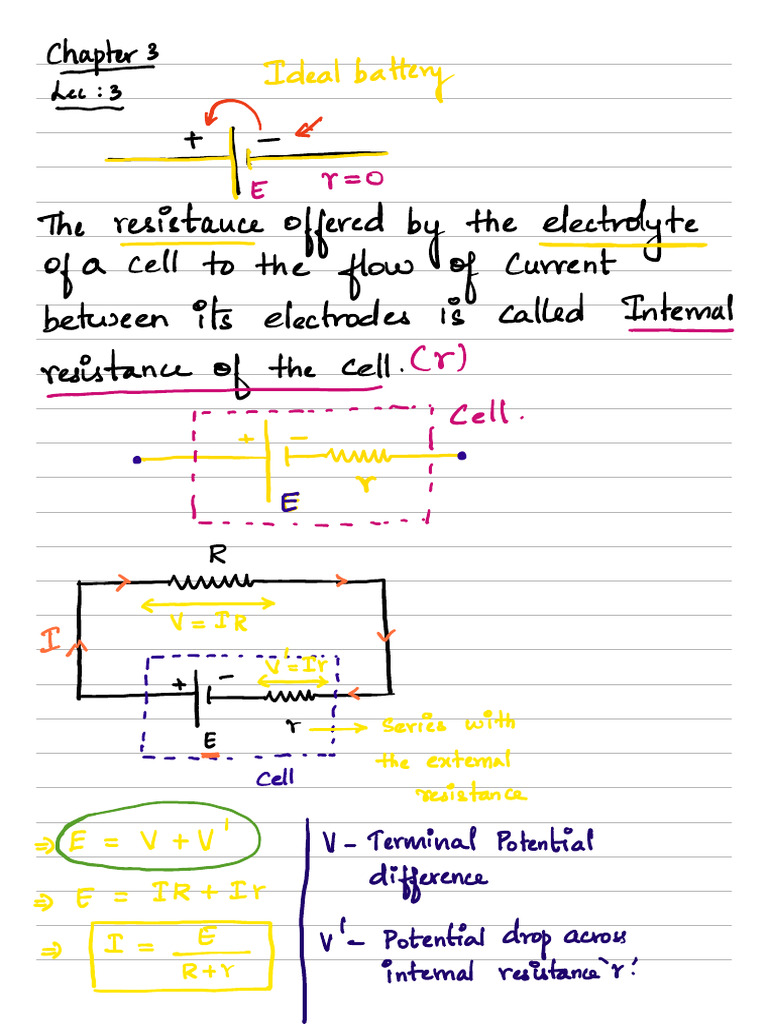 Chapter 3
Lec : 3
Ideal battery
+ −
E r=0
The resistance offered by the electrolyte
of a cell to the flow of current
between its electrodes is called Internal
resistance of the cell. (r)
Cell.
+ −
r
E
R
V = IR
I
V' = Ir
+ −
r → series with
E
the external
Cell
resistance
⇒ E = V + V'
⇒ E = IR + Ir
⇒ I = E / R+r
V – Terminal Potential
difference
V' – Potential drop across
internal resistance 'r'.